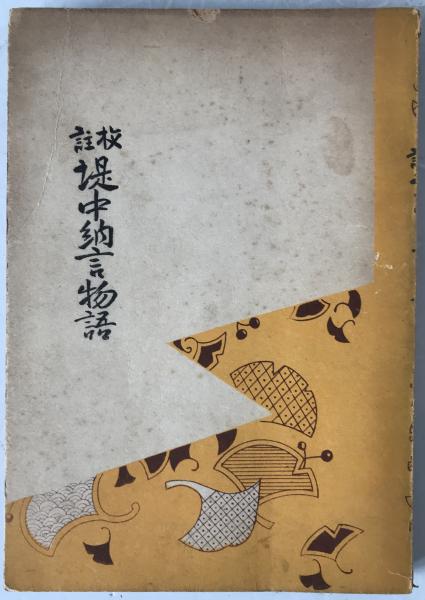 校註
堤中納言物語